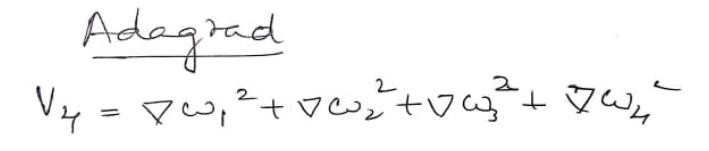 Adagrad
V₄ = ∇ω₁² + ∇ω₂² + ∇ω₃² + ∇ω₄²